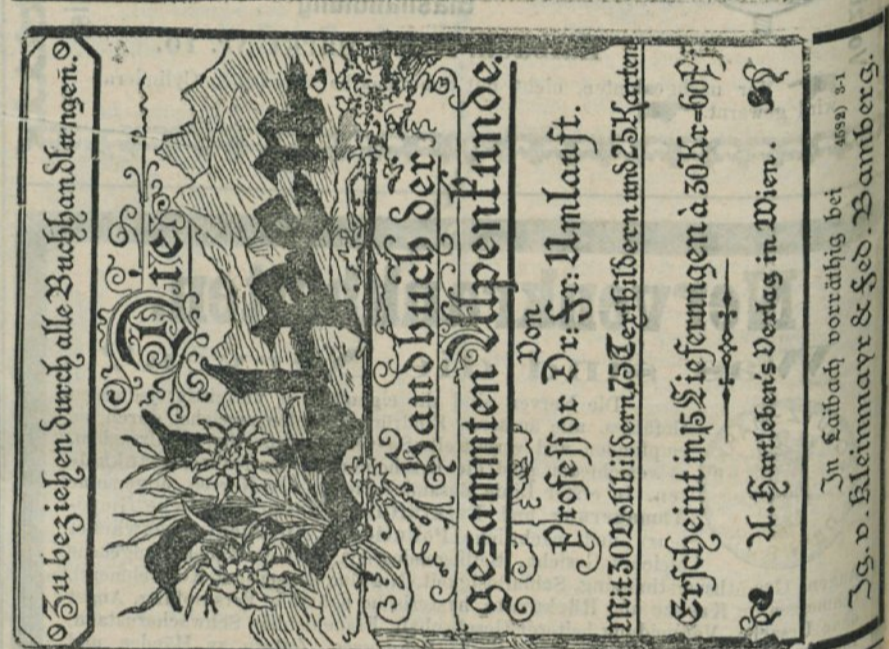 Zu beziehen durch alle Buchhandlungen.
Die
Alpen
Handbuch der
gesammten Alpenkunde.
Von
Professor Dr. Fr: Umlauft.
Mit 30 Vollbildern, 75 Textbildern und 25 Karten
Erscheint in 15 Lieferungen à 30 Kr = 60 Pf
A. Hartleben's Verlag in Wien.
In Laibach vorräthig bei 4582) 3-1
Ig. v. Kleinmayr & Fed. Bamberg.